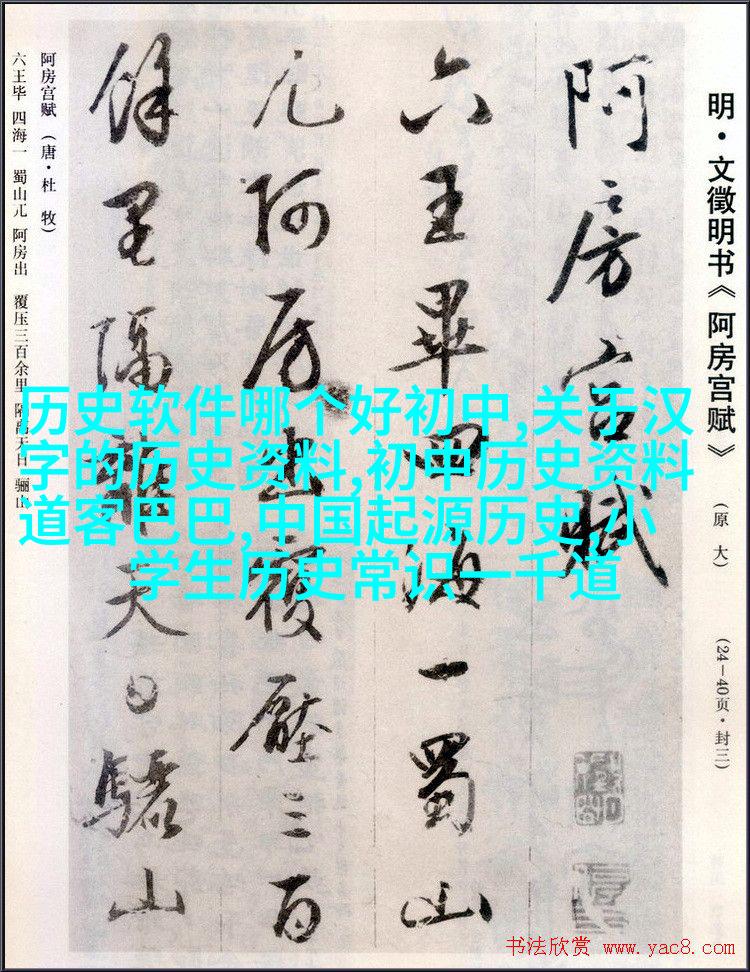 明·文徵明书《阿房宫赋》
（原大）
（24—40页·封三）
阿房宫赋
六王畢四海一蜀山
兀阿房出覆壓三百
餘里隔離天日驪山
阿房宫赋（唐·杜牧）
六王毕 四海一 蜀山兀 阿房出 覆压三百余里 隔离天日 骊山
历史软件哪个好初中,关于汉
字的历史资料,初中历史资料
道客巴巴,中国起源历史,小
学生历史常识一千道
书法欣赏 www.yac8.com